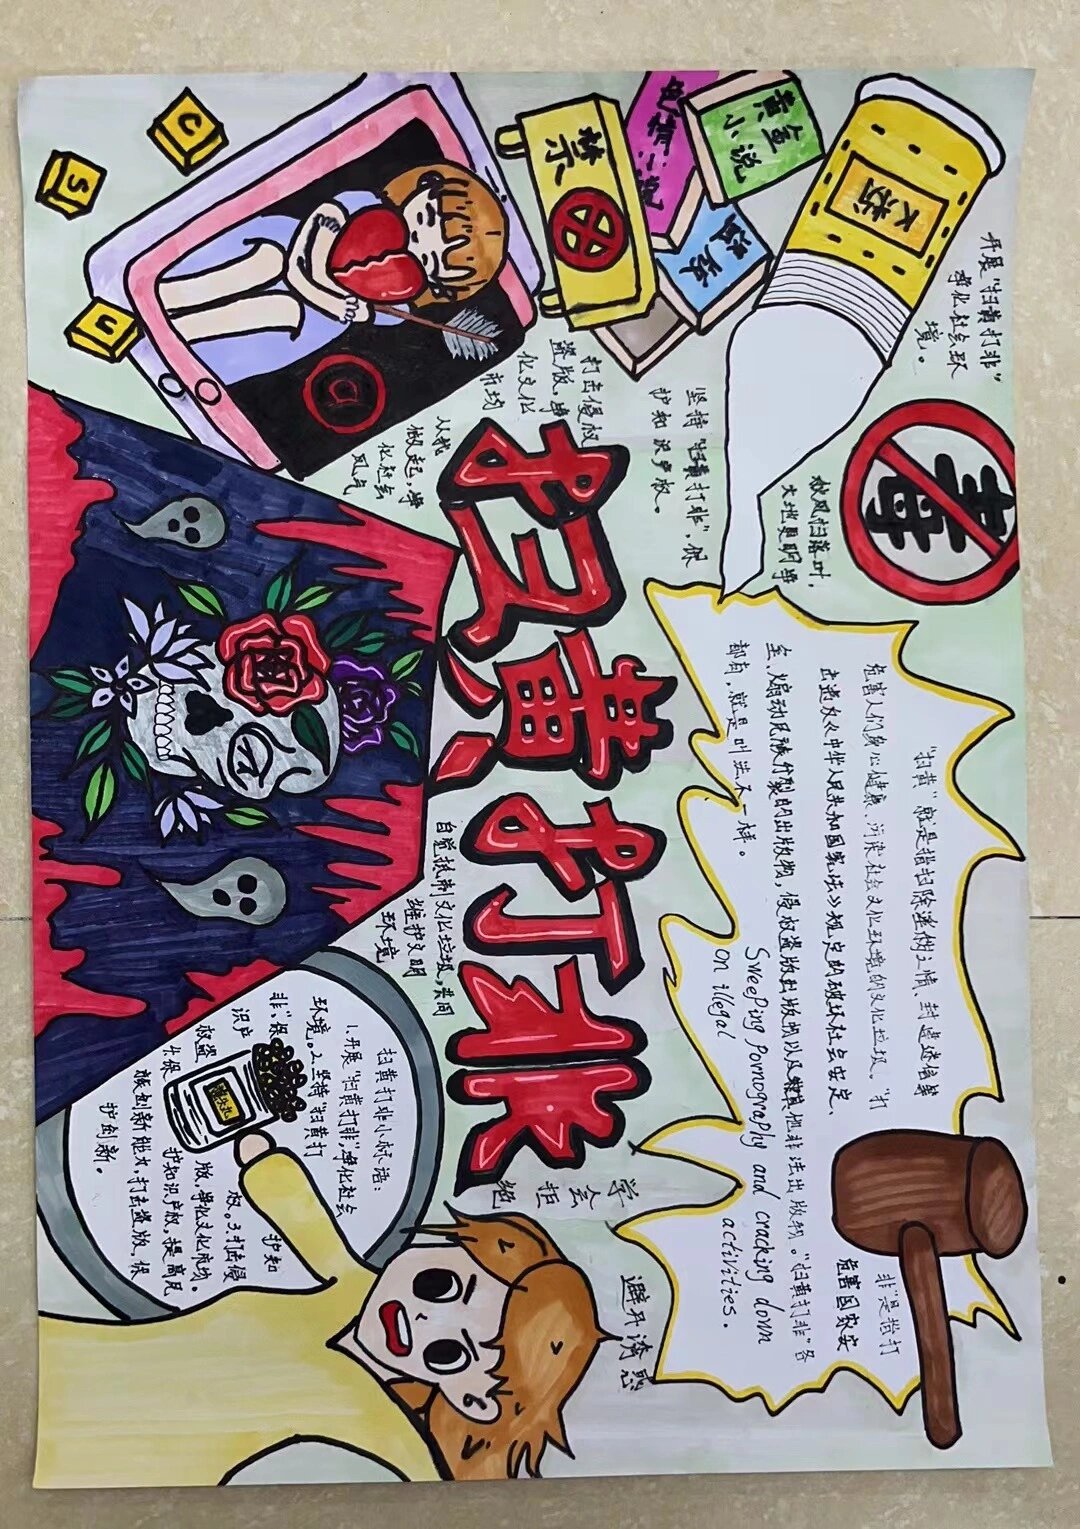 C
S
U
禁
色情小说
黄色小说
盗版
K粉
毒
开展"扫黄打非"
净化社会环
境。
秋风扫落叶,
大地更明净
坚持"扫黄打非",保
护知识产权。
打击侵权
盗版,净
化文化
市场
从我
做起,净
化社会
风气
扫黄打非
"扫黄"就是指扫除淫秽色情、封建迷信等
危害人们身心健康、污染社会文化环境的文化垃圾。"打非"是指打
击违反《中华人民共和国宪法》规定的破坏社会安定、危害国家安
全、煽动民族分裂的出版物,侵权盗版出版物以及其他非法出版物。"扫黄打非"各
都有,就是叫法不一样。
Sweeping Pornography and cracking down
on illegal activities.
自觉抵制文化垃圾,共同
维护文明
环境
学会拒绝
避开诱惑
扫黄打非小标语:
1.开展"扫黄打非",净化社会
环境。2.坚持"扫黄打
非",保护知
识产权。3.打击侵
权盗版,净化文化市场。
4.保护知识产权,提高民
族创新能力,打击盗版,保
护创新。